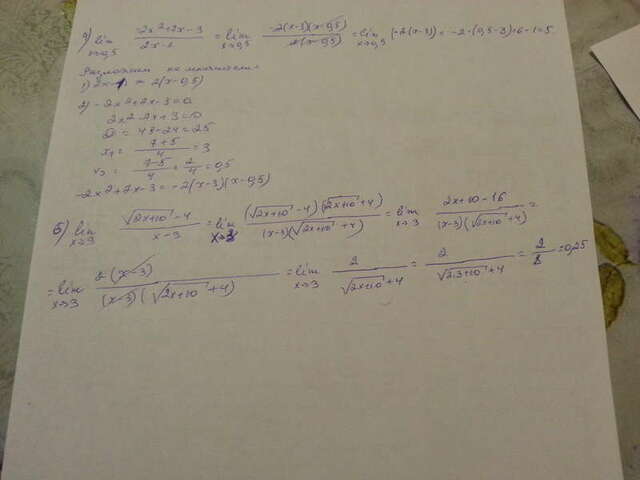 a) lim x→0,5 (-2x²+7x-3)/(2x-1) = lim x→0,5 (-2(x-3)(x-0,5))/(2(x-0,5)) = lim x→0,5
Разложим на множители
1) 2x-1 = 2(x-0,5)
2) -2x²+7x-3=0
2x²-7x+3=0
D = 49-24=25
x₁ = (7+5)/4 = 3
x₂ = (7-5)/4 = 2/4 = 0,5
-2x²+7x-3 = -2(x-3)(x-0,5)
б) lim x→3 (√(2x+10) - 4)/(x-3) = lim x→3 ((√(2x+10) - 4)(√(2x+10) + 4))/((x-3)(√(2x+10) + 4)) = lim x→3 (2x+10-16)/((x-3)(√(2x+10) + 4)) =
= lim x→3 (2(x-3))/((x-3)(√(2x+10) + 4)) = lim x→3 2/(√(2x+10) + 4) = 2/(√(2·3+10) + 4) = 2/8 = 0,25